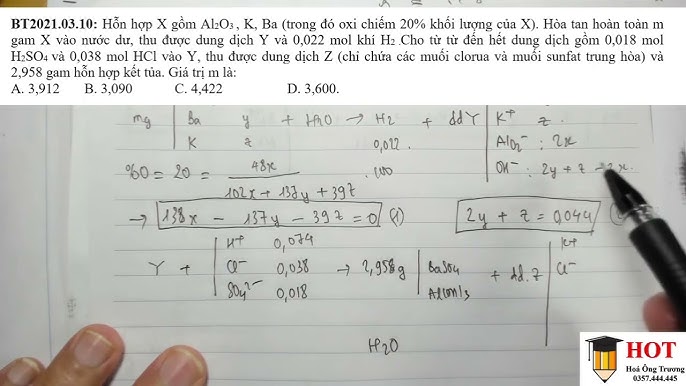 BT2021.03.10: Hỗn hợp X gồm Al₂O₃ , K, Ba (trong đó oxi chiếm 20% khối lượng của X). Hòa tan hoàn toàn m
gam X vào nước dư, thu được dung dịch Y và 0,022 mol khí H₂ .Cho từ từ đến hết dung dịch gồm 0,018 mol
H₂SO₄ và 0,038 mol HCl vào Y, thu được dung dịch Z (chỉ chứa các muối clorua và muối sunfat trung hòa) và
2,958 gam hỗn hợp kết tủa. Giá trị m là:
A. 3,912 B. 3,090 C. 4,422 D. 3,600.
mg Ba y + H₂O → H₂ + dd Y K⁺ z
K z 0,022 AlO₂⁻ : 2x
%O = 20 = 48x / 102x + 137y + 39z . 100 OH⁻ : 2y + z - 2x
→ 138x - 137y - 39z = 0 (1) 2y + z = 0,044
H⁺ 0,074 K⁺
Y + Cl⁻ 0,038 → 2,958g BaSO₄ + dd. Z Cl⁻
SO₄²⁻ 0,018 Al(OH)₃
H₂O
HOT
Hoá Ông Trương
0357.444.445